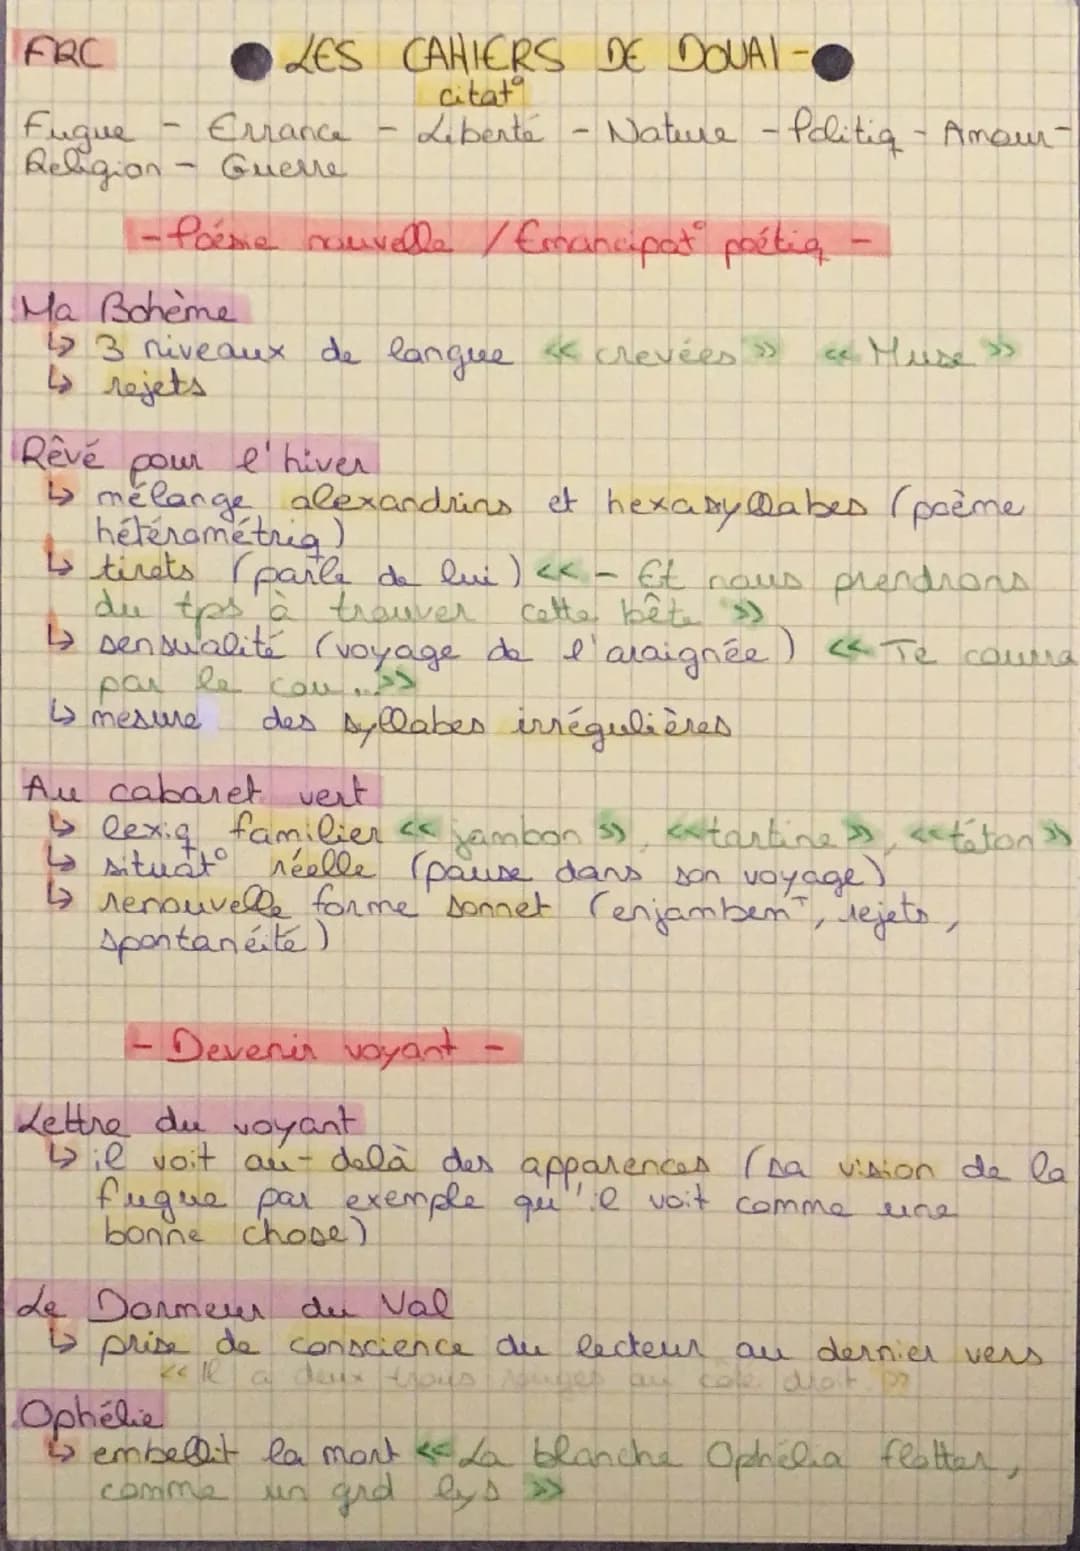 FRC
LES CAHIERS DE DOUAI -
citat°
Fugue - Errance - Liberté - Nature - Politiq - Amour -
Religion - Guerre
- Poésie nouvelle / Emancipat° poétiq -
Ma Bohème
↳ 3 niveaux de langue « crevées » « Muse »
↳ rejets
Rêvé pour l'hiver
↳ mélange alexandrins et hexasyllabes (poème
hétérométriq)
↳ tirets (parle de lui) « - Et nous prendrons
du tps à trouver cette bête »
↳ sensualité (voyage de l'araignée) « Te courra
par le cou... »
↳ mesure des syllabes irrégulières
Au cabaret vert
↳ lexiq familier « jambon », « tartine », « téton »
↳ situat° réelle (pause dans son voyage)
↳ renouvelle forme sonnet (enjambemT, rejets,
spontanéité)
- Devenir voyant -
Lettre du voyant
↳ il voit au-delà des apparences (sa vision de la
fugue par exemple qu'il voit comme une
bonne chose)
Le Dormeur du Val
↳ prise de conscience du lecteur au dernier vers
« Il a deux trous rouges au coté droit. »
Ophélie
↳ embellit la mort « La blanche Ophélia flotter,
comme un grd lys »